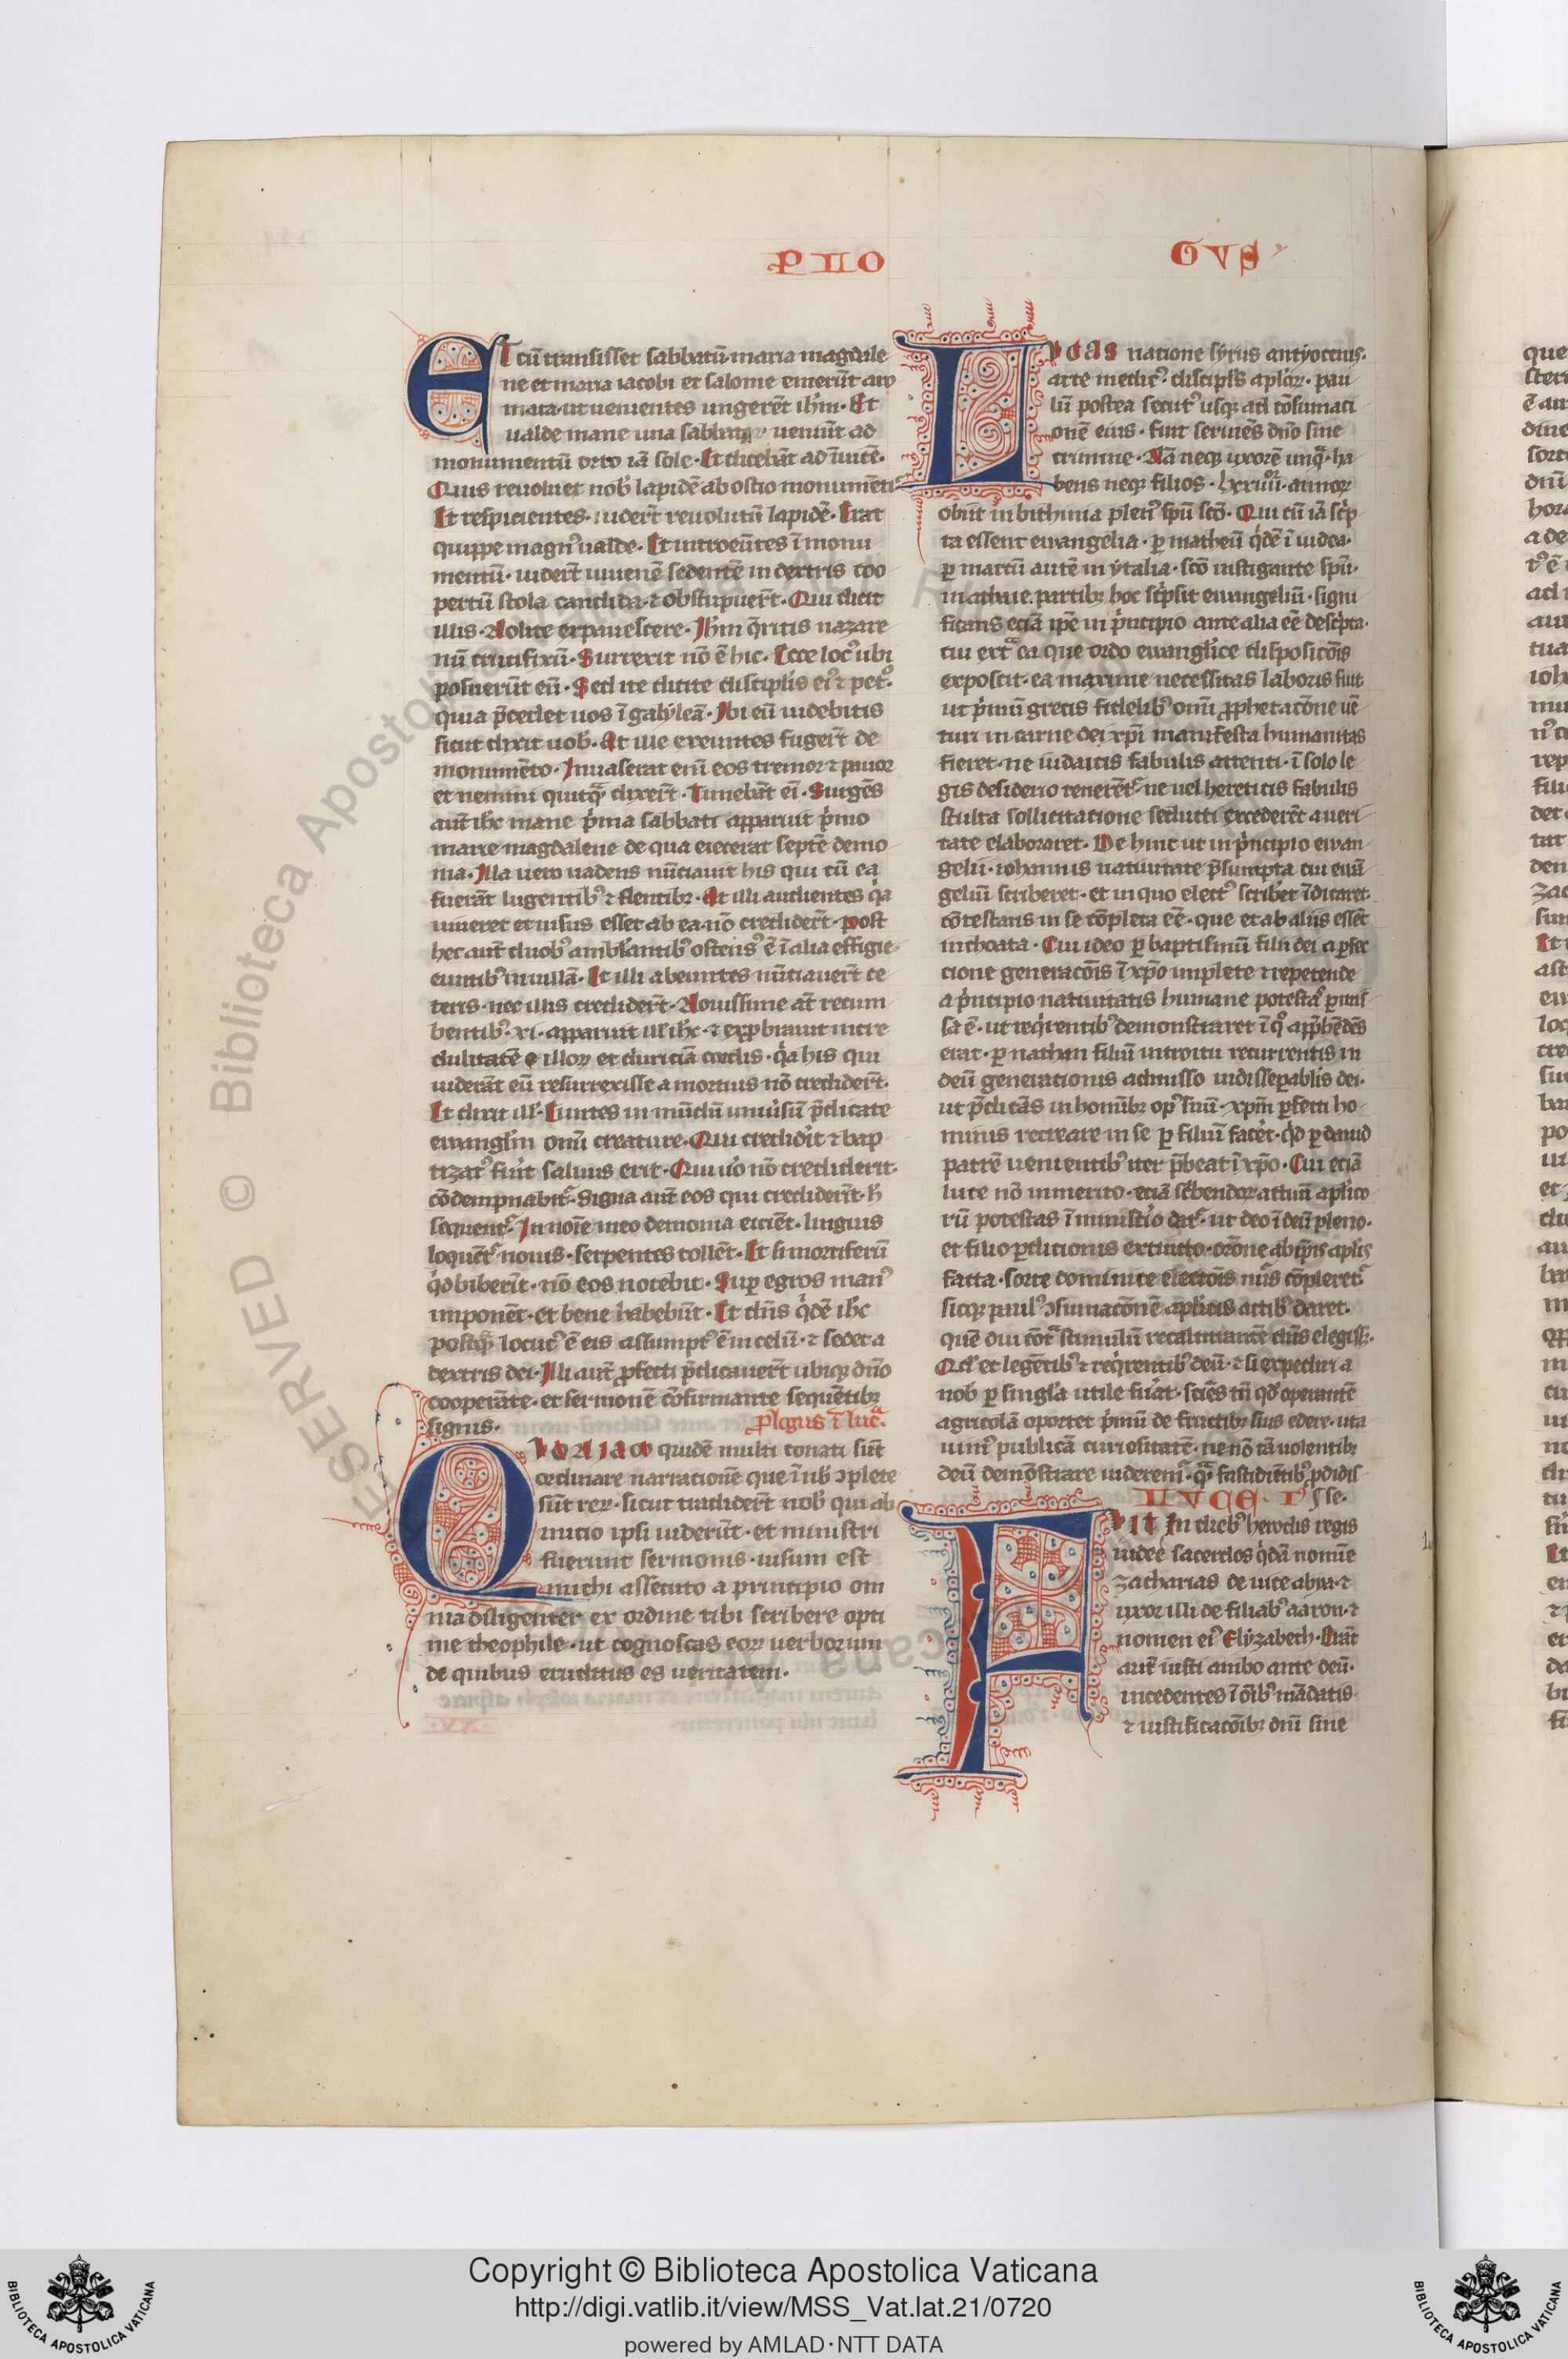 PRO
GVS
ET cū transisset sabbatū· maria magdale
ne et maria iacobi et salome emerūt aro
mata· ut uenientes ungerēt ihm̄· Et
ualde mane una sabbatorum ueniūt ad
monumentū orto iā sole· Et dicebāt ad īuicē·
Quis reuoluet nob̄ lapidē ab ostio monumēti·
Et respicientes· uider̄t reuolutū lapidē· Erat
quippe magnꝰ ualde· Et introeūtes ī monu
mentū· uider̄t iuuenē sedentē in dextris coo
pertū stola candida· ⁊ obstupuer̄t· Qui dicit
illis· Nolite expauescere· Ihm̄ q̄ritis nazare
nū crucifixū· Surrexit nō ē hic· Ecce locꝰ ubi
posuerūt eū· Sed ite dicite discipulis eiꝰ ⁊ pet̊·
quia p̄cedet uos ī galyleā· Ibi eū uidebitis
sicut dixit uob̄· At ille exeuntes fuger̄t de
monumēto· Inuaserat eni eos tremor ⁊ pauor
et nemini quicq̄ dixer̄t· Timebāt ei· Surgēs
aut̄ ihc̄ mane p̍ma sabbati apparuit p̍mo
marie magdalene de qua eiecerat septē demo
nia· Illa uero uadens nūciauit his qui cū ea
fuerāt lugentibꝰ ⁊ flentibꝫ· At illi audientes q̍a
uiueret et uisus esset ab ea· nō credider̄t· Post
hec aut̄ duobꝰ ambl̄antibꝰ ostensꝰ ē ī alia effigie·
euntibꝰ in uillā· Et illi abeuntes nūciauer̄t ce
teris· nec illis credider̄t· Nouissime at̄ recum
bentibꝰ· xi· apparuit ill̄ ihc̄· ⁊ exꝓbrauit incre
dulitatē illoꝝ et duriciā cordis· q̍a his qui
uiderāt eū resurrexisse a mortuis nō credider̄t·
Et dixit ill̄· Euntes in mūdū uniu̍sū p̄dicate
ewangl̄m omī creature· Qui credidit ⁊ bap
tizatꝰ fuit saluus erit· Qui u̍o nō crediderit·
cōdempnabit᷑· Signa aut̄ eos qui crediderīt· h̄
sequent᷑· In noīe meo demonia eicient· linguis
loquēt᷑ nouis· serpentes tollēt· Et si mortiferū
q̍d biberīt· nō eos nocebit· Suꝑ egros manꝰ
imponēt· et bene habebūt· Et dn̄s q̍dē ihc̄
postq̄ locutꝰ ē eis assumptꝰ ē in celū· ⁊ sedet a
dextris dei· Illi aut̄ ꝓfecti p̄dicauer̄t ubiqꝫ dn̄o
cooperāte· et sermonē cōfirmante sequētibꝫ
signis·
ꝓlogus ī luc̄·
QVONIAM quidē multi conati sūt
ordinare narrationē que ī nob̄ ꝯplete
sūt reꝝ· sicut tradider̄t nob̄ qui ab
inicio ipsi uiderūt· et ministri
fuerunt sermonis· uisum est
michi assecuto a principio om
nia diligenter ex ordine tibi scribere opti
me theophile· ut cognoscas eoꝝ uerborum
de quibus eruditus es ueritatem·
LVCAS natione syrus antyocenus·
arte medicꝰ· discipls̄ apl̄oꝝ· pau
lū postea secutꝰ usqꝫ ad cōsumati
onē eius· fuit seruiēs dn̄o sine
crimine· Nā neqꝫ uxorē unq̄· ha
bens neqꝫ filios· lxxiiii· annoꝝ
obiit in bithinia plenꝰ spū scō· Qui cū iā sc̍p
ta essent ewangelia· ꝑ matheū q̍dē ī iudea·
ꝑ marcū autē in ytalia· scō instigante spū·
in achaie partibꝫ hoc sc̍psit euangeliū· signi
ficans eciā ipē in p̍ncipio ante alia eē desc̍pta·
cui ext̄ ea que ordo ewangl̄ice disposicōis
exposcit· ea maxime necessitas laboris fuit
ut p̍mū grecis fidelibꝰ omī ꝓphetacōne uē
turi in carne dei xp̄i manifesta humanitas
fieret· ne iudaicis fabulis attenti· ī solo le
gis desiderio tenerēt᷑· ne uel hereticis fabulis
stulta sollicitatione seducti excederēt a ueri
tate elaboraret· De hinc ut in p̍ncipio ewan
gelii· iohannis natiuitate p̄sumpta cui euā
geliū scriberet· et in quo electꝰ scriberet īdicaret·
cōtestans in se cōpleta eē· que et ab aliis essēt
inchoata· Cui ideo ꝑ baptismū filii dei a ꝑfec
cione generacōis ī xp̄o implete ⁊ repetende
a p̍ncipio natiuitatis humane potestas ꝑmis
sa ē· ut req̍rentibꝰ demonstraret ī q̊ app̄hēdēs
erat· ꝑ nathan filiū introitu recurrentis in
deū generationis admisso indisseparabl̄is dei·
ut p̄dicās in hominībꝫ opꝰ suū· xp̄m ꝑfecti ho
minis recreare in se ꝑ filiū facet· q̍d ꝑ dauid
patrē uenientibꝰ iter p̄beat ī xp̄o· Cui eciā
luce nō immerito· eciā sc̍bendoꝝ actuū apl̄ico
rū potestas ī ministio dat᷑· ut deo ī deū pleno·
et filio ꝑditionis extincto· or̄one ab ip̄is apl̄is
facta· sorte dominice electōis nūs cōpleret᷑
sicqꝫ paulꝰ ꝯsumacōnē apl̄icis actibꝰ daret·
quē diu cōt̄ stimulū recalcitrantē dn̄s elegiss;·
Qd̍ et legētibꝰ ⁊ req̍rentibꝰ deū· ⁊ si expediri a
nob̄ ꝑ singl̄a utile fu̍at· sciēs tn̄ qd̍ operantē
agricolā oportet p̍mū de fructibꝫ suis edere· uita
uimꝰ publicā curiositatē· ne nō tā uolentibꝫ
deū demōstrare uiderem᷑· q̄ fastidiētibꝰ ꝓdidis
sse·
LVCE· I
FVIT In diebꝰ herodis regis
iudee sacerdos q̍dā nomīe
zacharias de uice abia· ⁊
uxor illi de filiabꝰ aaron· ⁊
nomen eiꝰ Elyzabeth· Erāt
aut̄ iusti ambo ante deū·
incedentes ī oībꝰ mādatis
⁊ iustificacōibꝫ dnī sine
Copyright © Biblioteca Apostolica Vaticana
http://digi.vatlib.it/view/MSS_Vat.lat.21/0720
powered by AMLAD·NTT DATA
BIBLIOTECA APOSTOLICA VATICANA
BIBLIOTECA APOSTOLICA VATICANA